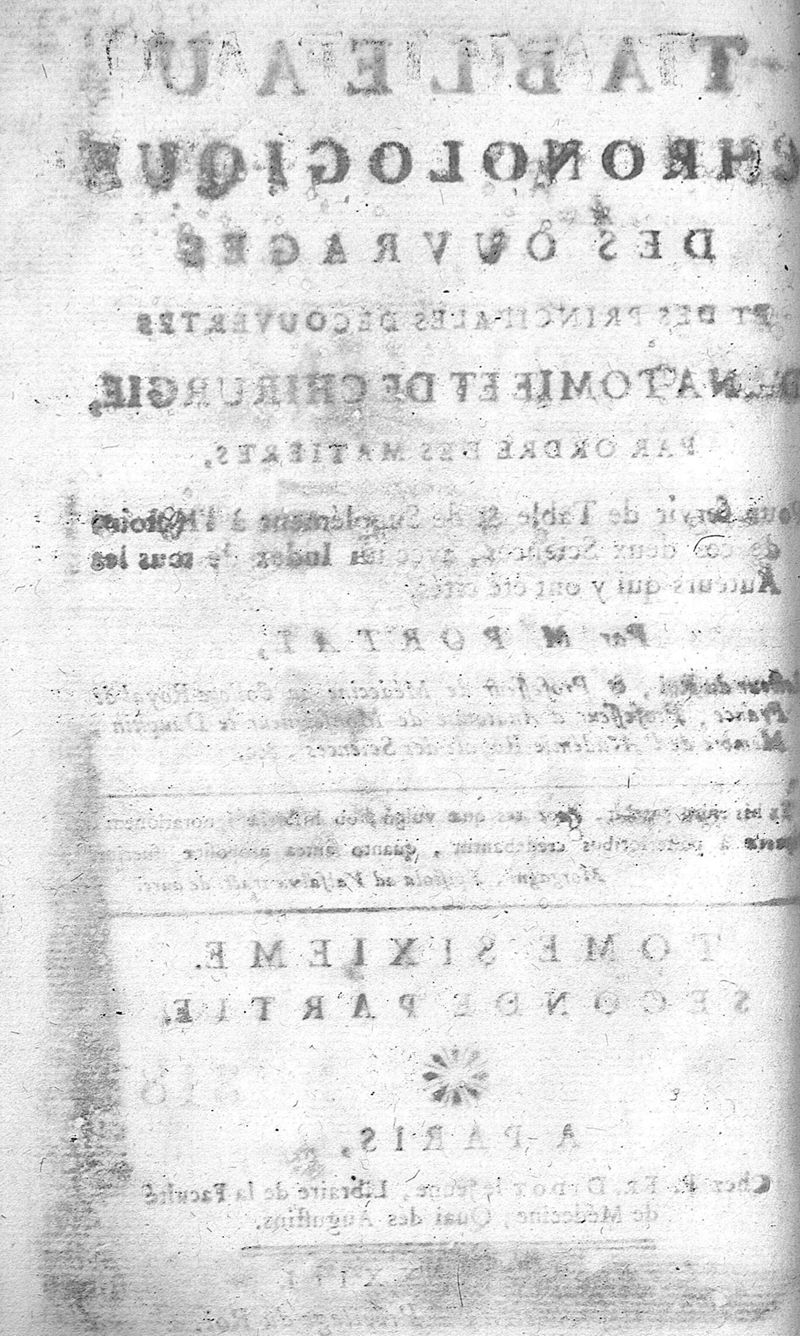 TABLEAU
CHRONOLOGIQUE
DES OUVRAGES
ET DES PRINCIPALES DÉCOUVERTES
D'ANATOMIE ET DE CHIRURGIE,
PAR ORDRE DES MATIERES,
Pour servir de Table & de Supplément à l'Histoire
de ces deux Sciences, avec un Index de tous les
Auteurs qui y ont été cités.
Par M. PORTAL,
du Roi, & Professeur de Médecine au College Royal de
France, Professeur d'Anatomie de Monseigneur le Dauphin,
Membre de l'Académie Royale des Sciences, &c.
res quæ vulgò
à posterioribus credebantur, quanto antea
Morgagni, Epistola ad Valsalvæ tract. de aure.
TOME SIXIEME.
SECONDE PARTIE.
A PARIS,
Chez P. FR. DIDOT le jeune, Libraire de la Faculté
de Médecine, Quai des Augustins.
Privilege du Roi.